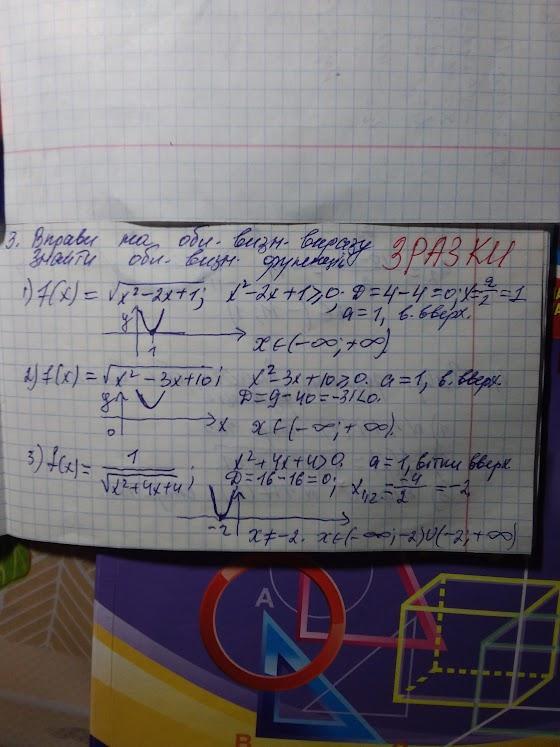 3. Вправи на обл. визн. виразу
Знайти обл. визн. функції
ЗРАЗКИ
1) f(x) = √x²-2x+1; x²-2x+1≥0. D=4-4=0; x=2/2=1
a=1, в. вверх.
y
1
x∈(-∞;+∞)
2) f(x) = √x²-3x+10; x²-3x+10≥0. a=1, в. вверх.
D=9-40=-31<0.
y
0
x
x∈(-∞;+∞).
3) f(x) = 1/√x²+4x+4; x²+4x+4>0. a=1, вітки вверх
D=16-16=0; x₁,₂=-4/2=-2
-2
x≠-2. x∈(-∞;-2)∪(-2;+∞)
A
B